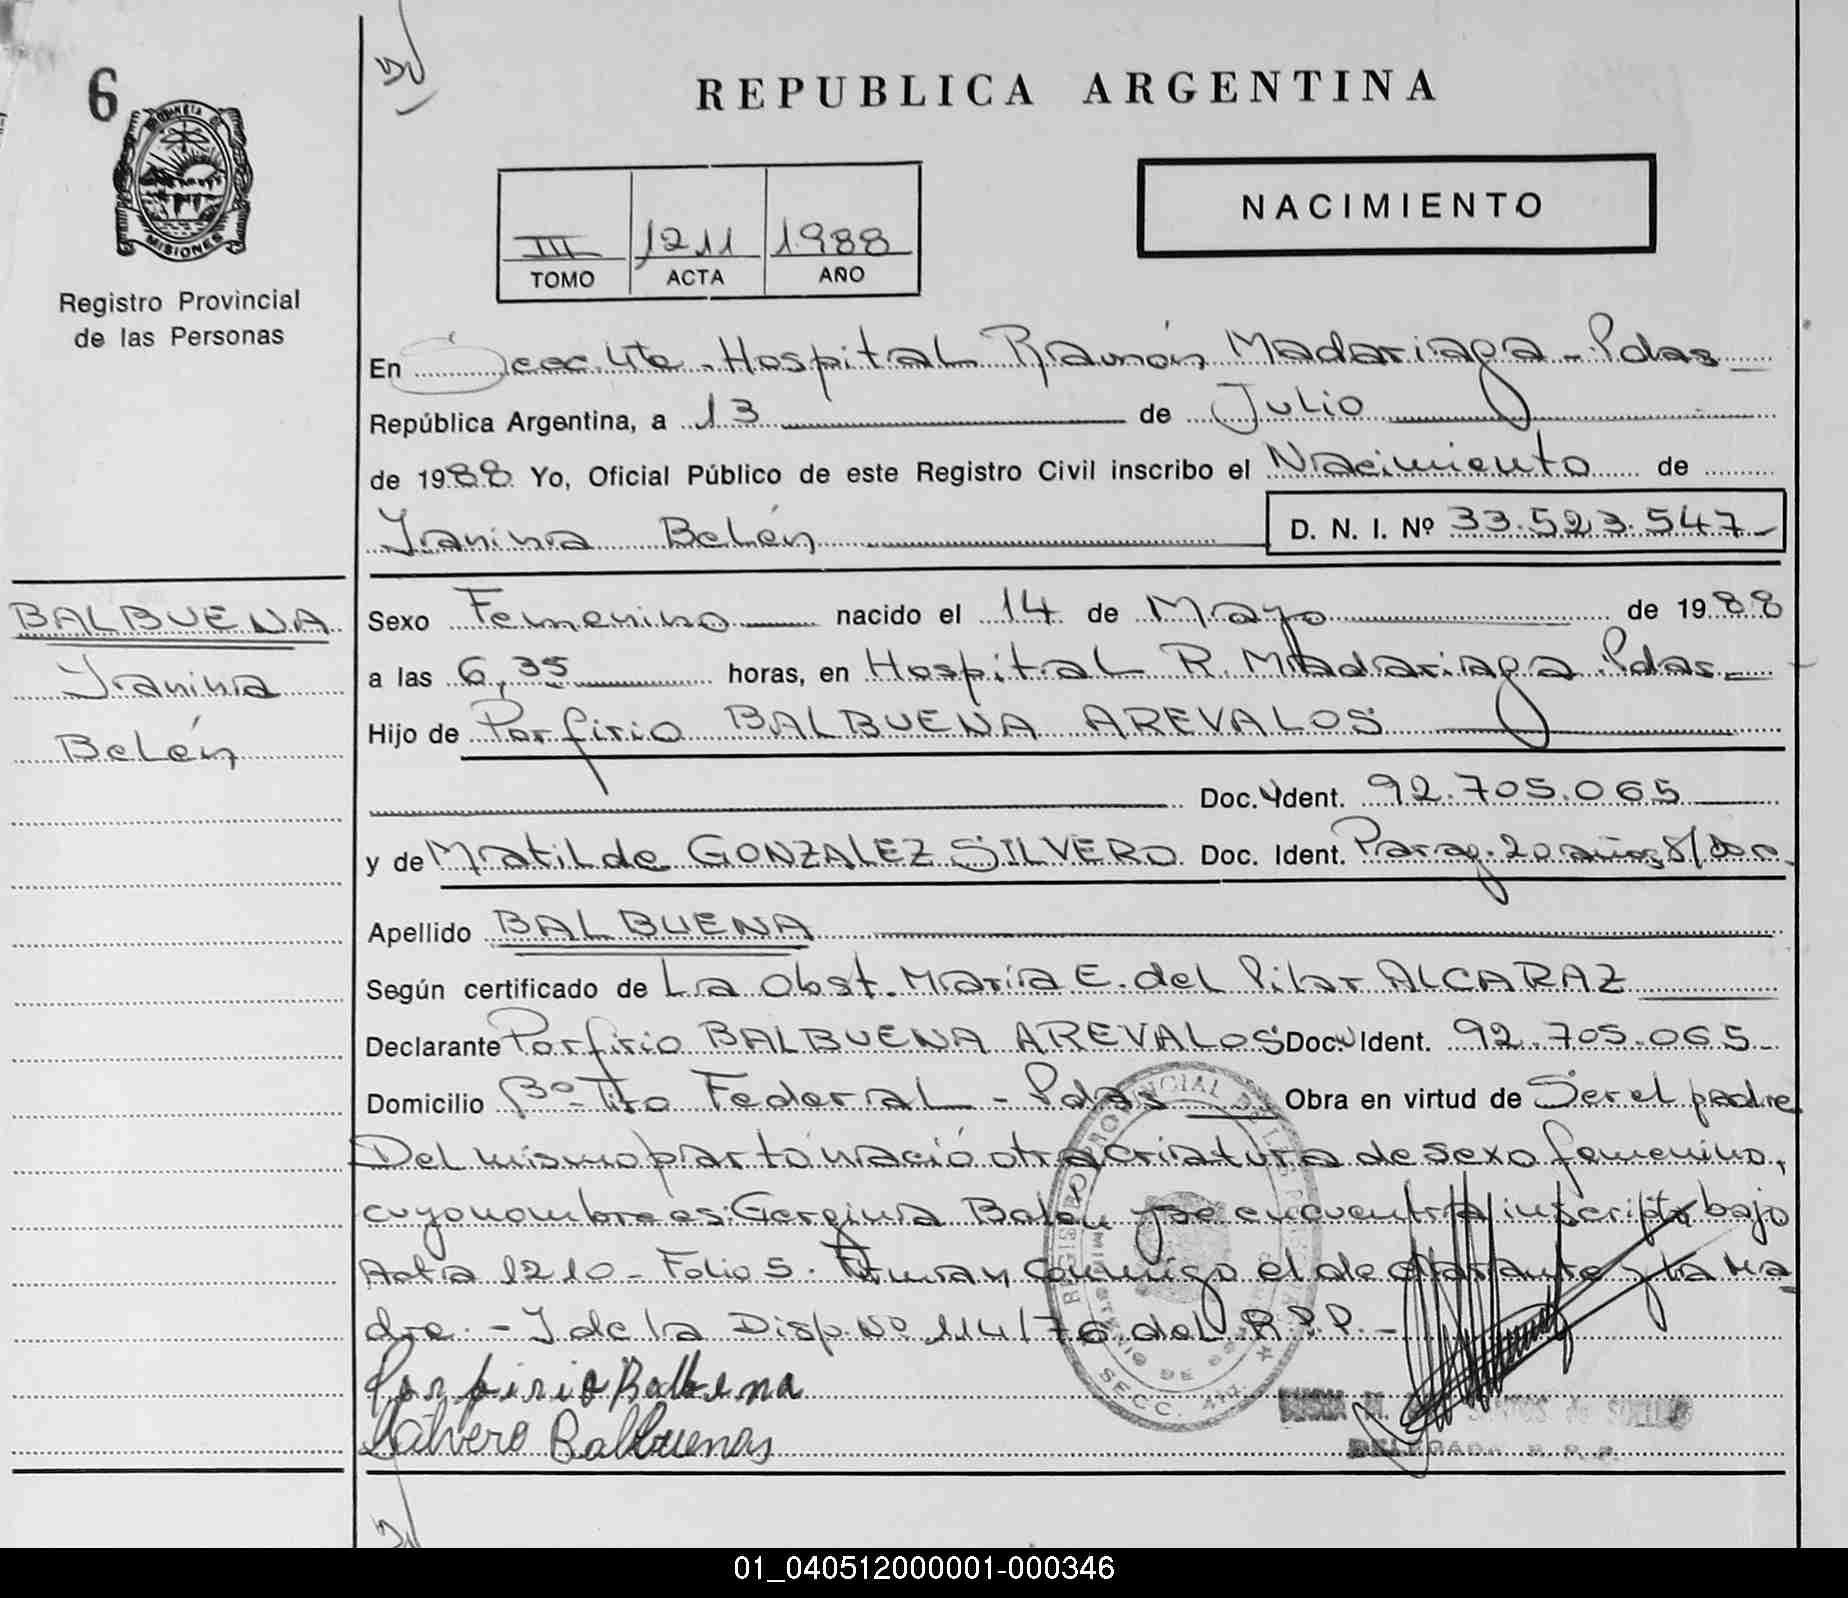 6
PROVINCIA DE
MISIONES
Registro Provincial
de las Personas
REPUBLICA ARGENTINA
NACIMIENTO
III 1211 1988
TOMO ACTA AÑO
En Secc. 4ta - Hospital Ramón Madariaga - Pdas
República Argentina, a 13 de Julio
de 1988 Yo, Oficial Público de este Registro Civil inscribo el Nacimiento de
Yanina Belén D. N. I. Nº 33.523.547
BALBUENA
Yanina
Belén
Sexo Femenino nacido el 14 de Mayo de 1988
a las 6,35 horas, en Hospital R. Madariaga Pdas.
Hijo de Porfirio BALBUENA AREVALOS
Doc. Ident. 92.705.065
y de Matilde GONZALEZ SILVERO Doc. Ident. Parag. 20 años S/Doc.
Apellido BALBUENA
Según certificado de La Obst. María E. del Pilar ALCARAZ
Declarante Porfirio BALBUENA AREVALOS Doc. Ident. 92.705.065
Domicilio Bº Tiro Federal - Pdas Obra en virtud de Ser el padre
Del mismo parto nació otra criatura de sexo femenino,
cuyo nombre es: Gergina Belén y se encuentra inscripta bajo
Acta 1210 - Folio 5. Firman conmigo el declarante y la ma
dre. - Y de la Disp. Nº 114/76 del R.P.P. -
Porfirio Balbuena
Silvero Balbuenas
REGISTRO PROVINCIAL DE LAS PERSONAS
SECC. 4ta.
DELEGADA R. P. P.
01_040512000001-000346